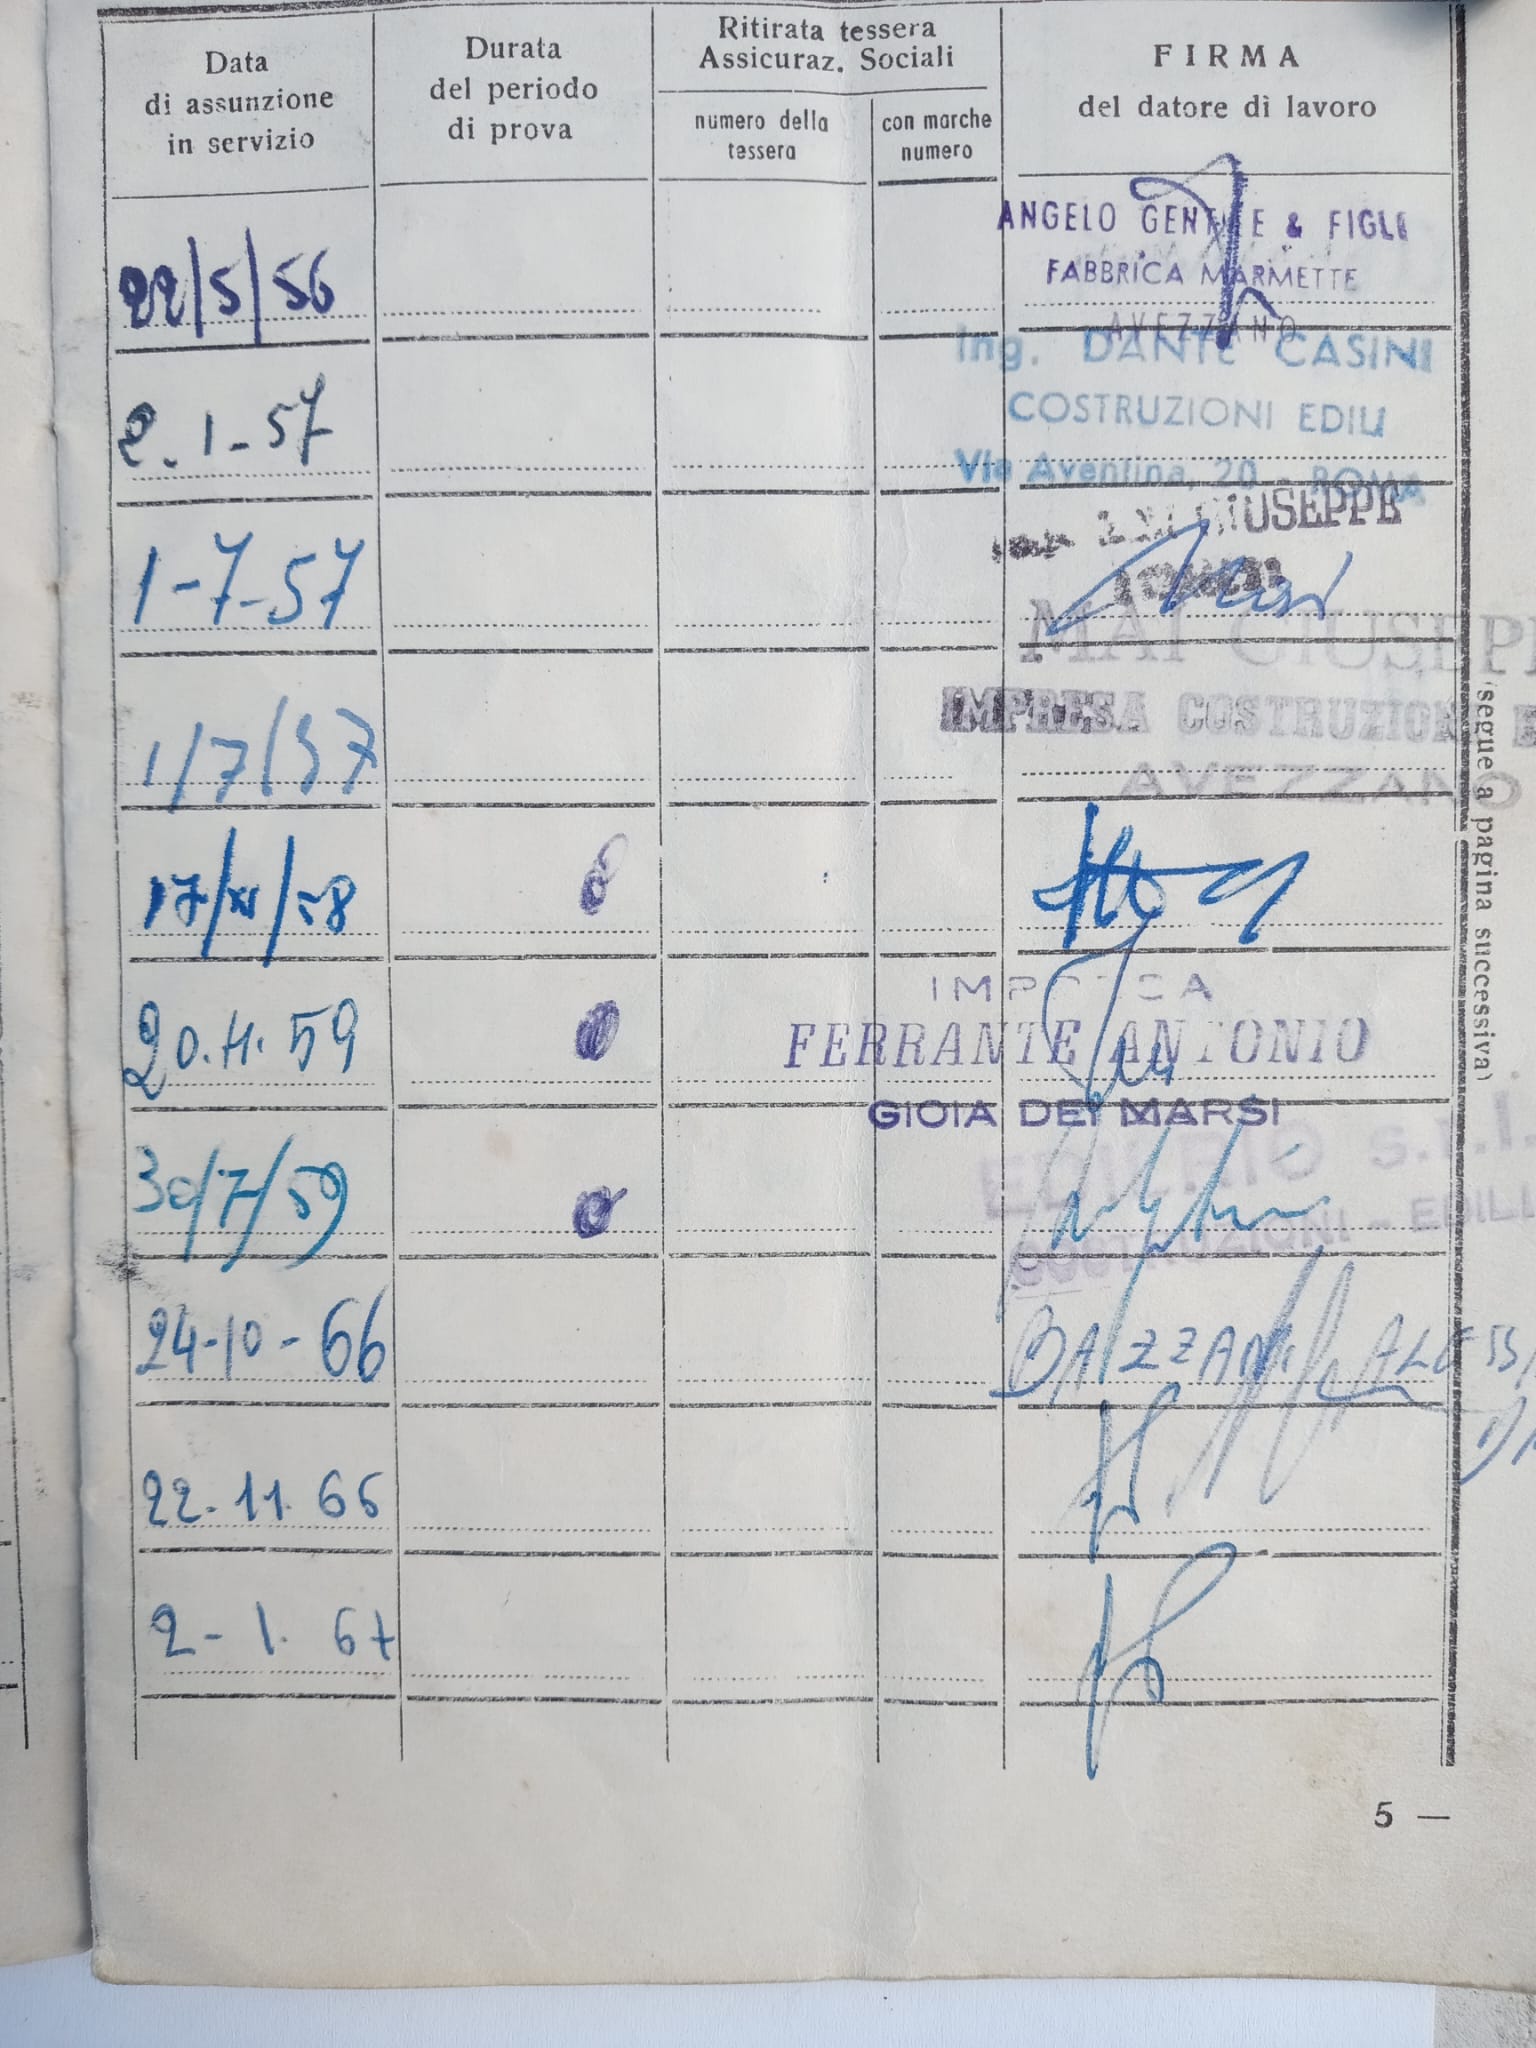 Data
di assunzione
in servizio
Durata
del periodo
di prova
Ritirata tessera
Assicuraz. Sociali
numero della
tessera
con marche
numero
FIRMA
del datore di lavoro
22/5/56
ANGELO GENTILE & FIGLI
FABBRICA MARMETTE
AVEZZANO
2.1-57
Ing. DANTE CASINI
COSTRUZIONI EDILI
Via Aventina, 20 - ROMA
1-7-57
GIUSEPPE
1/7/57
MAI GIUSEPPE
IMPRESA COSTRUZIONI E
AVEZZANO
17/XI/58
20.11.59
IMPRESA
FERRANTE ANTONIO
GIOIA DEI MARSI
30/7/59
EDILRIO s.r.l.
COSTRUZIONI - EDILI
24-10-66
22-11.66
2-1.67
(segue a pagina successiva)
5 —